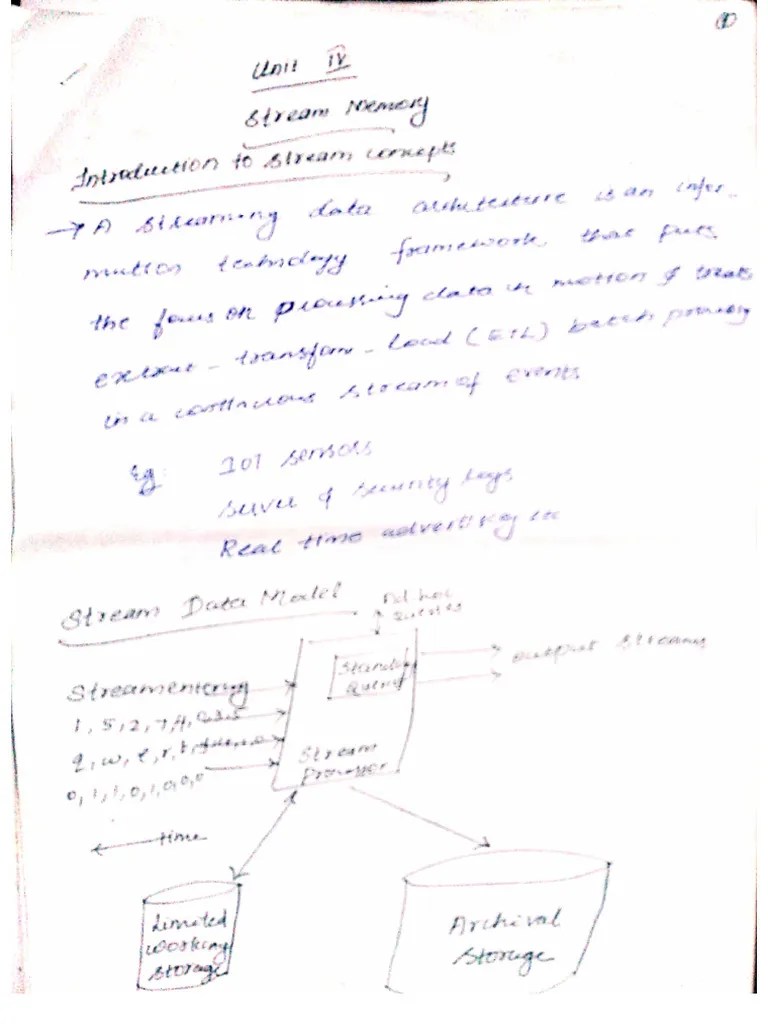 ①
Unit IV
Stream Memory
Introduction to Stream concepts
→ A Streaming data architecture is an infor-
mation technology framework that puts
the focus on processing data in motion & treats
extract - transform - load (ETL) batch processing
in a continuous stream of events
Eg: IOT sensors
Server & Security logs
Real time advertising
Stream Data Model
Ad hoc
Queries
Standing
Query
output streams
Stream entering
1, 5, 2, 7, 4,
q, w, e, r, t,
0, 1, 1, 0, 1, 0, 0, 0
Stream
Processor
time
Limited
working
storage
Archival
Storage